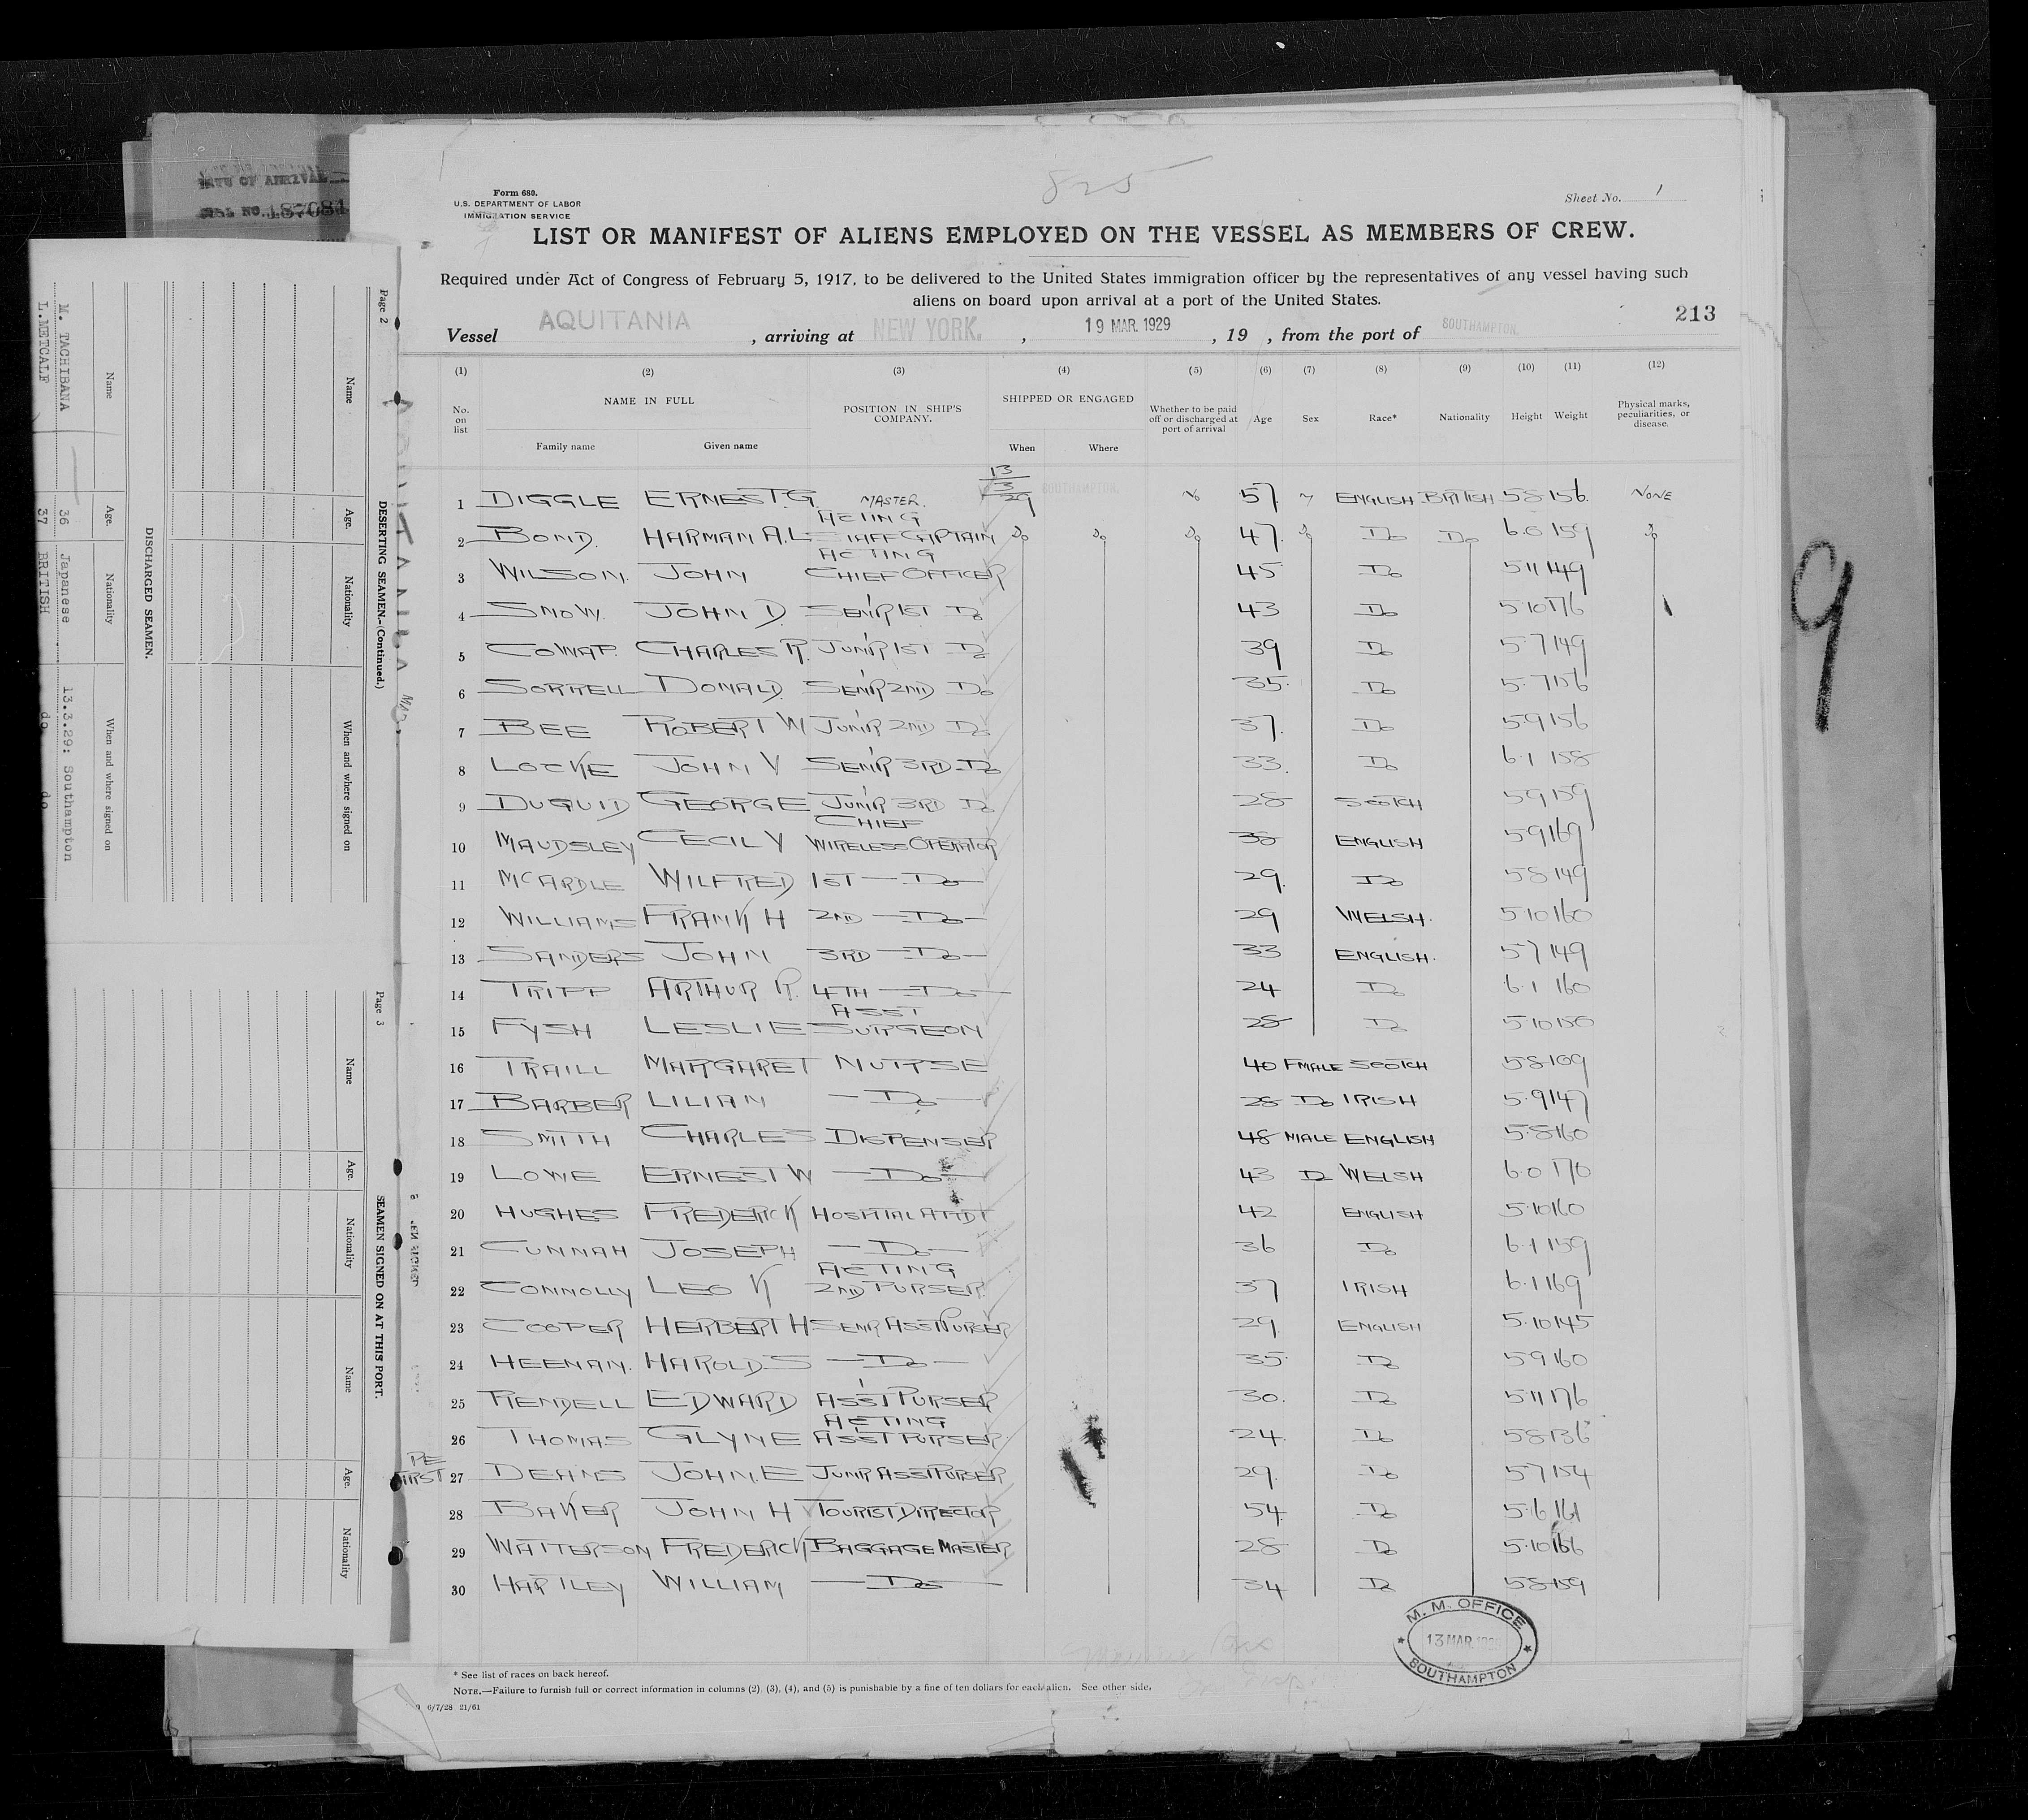 DATE OF ARRIVAL
187084
825
Form 680.
U.S. DEPARTMENT OF LABOR
IMMIGRATION SERVICE
Sheet No. 1
LIST OR MANIFEST OF ALIENS EMPLOYED ON THE VESSEL AS MEMBERS OF CREW.
Required under Act of Congress of February 5, 1917, to be delivered to the United States immigration officer by the representatives of any vessel having such
aliens on board upon arrival at a port of the United States.
213
Vessel AQUITANIA , arriving at NEW YORK. , 19 MAR. 1929 , 19 , from the port of SOUTHAMPTON.
(1) (2) (3) (4) (5) (6) (7) (8) (9) (10) (11) (12)
No. on list NAME IN FULL POSITION IN SHIP'S COMPANY. SHIPPED OR ENGAGED Whether to be paid off or discharged at port of arrival Age Sex Race* Nationality Height Weight Physical marks, peculiarities, or disease.
Family name Given name When Where
1 DIGGLE ERNEST G. MASTER. 13/3/29 SOUTHAMPTON. 57 ENGLISH BRITISH 5 8 156 NONE
2 BOND. HARMAN A.L ACTING STAFF CAPTAIN Do Do Do 47. Do Do Do 6.0 159 Do
3 WILSON. JOHN ACTING CHIEF OFFICER 45 Do 5 11 149
4 SNOW. JOHN D. SEN'R 1ST Do 43 Do 5.10 176
5 COWAP. CHARLES R. JUN'R 1ST Do 39 Do 5 7 149
6 SORRELL DONALD. SEN'R 2ND Do 35. Do 5.7 156
7 BEE ROBERT W JUN'R 2ND Do 37. Do 5 9 156
8 LOCKE JOHN V SEN'R 3RD Do 33. Do 6.1 158
9 DUGUID GEORGE JUN'R 3RD Do 28 SCOTCH 5 9 159
10 MAUDSLEY CECIL Y CHIEF WIRELESS OPERATOR 38 ENGLISH 5 9 169
11 McARDLE WILFRED 1ST Do 29. Do 5 8 149
12 WILLIAMS FRANK H 2ND Do 29 WELSH. 5 10 160
13 SANDERS JOHN 3RD Do 33 ENGLISH. 5 7 149
14 TRIPP ARTHUR R. 4TH Do 24 Do 6.1 160
15 FYSH LESLIE ASST SURGEON 28 Do 5 10 150
16 TRAILL MARGARET NURSE 40 FMALE SCOTCH 5 8 109
17 BARBER LILIAN Do 28 Do IRISH 5.9 147
18 SMITH CHARLES DISPENSER 48 MALE ENGLISH 5.8 160
19 LOWE ERNEST W Do 43 Do WELSH 6.0 170
20 HUGHES FREDERICK HOSPITAL ATTDT 42 ENGLISH 5.10 160
21 CUNNAH JOSEPH Do 36 Do 6.1 159
22 CONNOLLY LEO K ACTING 2ND PURSER. 37 IRISH 6.1 169
23 COOPER HERBERT H SENR ASST PURSER 29. ENGLISH 5.10 145
24 HEENAN. HAROLD S Do 35. Do 5 9 160
25 RENDELL EDWARD ASS'T PURSER 30. Do 5 11 176
26 THOMAS GLYNE ACTING ASS'T PURSER 24. Do 5 8 136
27 DEANS JOHN. E JUNR ASST PURSER 29. Do 5 7 154
28 BAKER JOHN H TOURIST DIRECTOR 54 Do 5.6 161
29 WATTERSON FREDERICK BAGGAGE MASTER 28 Do 5.10 166
30 HARTLEY WILLIAM Do 34 Do 5 8 159
M. M. OFFICE
13 MAR. 1929
SOUTHAMPTON
* See list of races on back hereof.
NOTE.—Failure to furnish full or correct information in columns (2), (3), (4), and (5) is punishable by a fine of ten dollars for each alien. See other side.
6/7/28 21/61
9
Page 2
DESERTING SEAMEN.-(Continued.)
Name Age. Nationality When and where signed on
DISCHARGED SEAMEN.
Name Age. Nationality When and where signed on
M. TACHIBANA 36 Japanese 13.3.29: Southampton
L.METCALF 37 BRITISH do do
Page 3
SEAMEN SIGNED ON AT THIS PORT.
Name Age. Nationality Name Age. Nationality